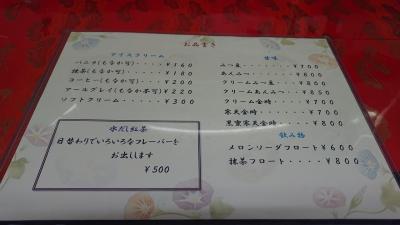 お品書き
アイスクリーム
バニラ(もなか可)・・・・¥160
抹茶(もなか可)・・・・¥180
コーヒー(もなか可)・・・¥200
アールグレイ(もなか不可)・・¥220
ソフトクリーム・・・・・¥300
水だし紅茶
日替わりでいろいろなフレーバーを
お出しします
¥500
甘味
みつ豆・・・・・・・¥700
あんみつ・・・・・・¥800
クリームみつ豆・・・・¥800
クリームあんみつ・・・¥850
クリーム金時・・・・・¥700
寒天金時・・・・・・¥700
黒蜜寒天金時・・・・¥800
飲み物
メロンソーダフロート¥600
抹茶フロート・・・・¥800